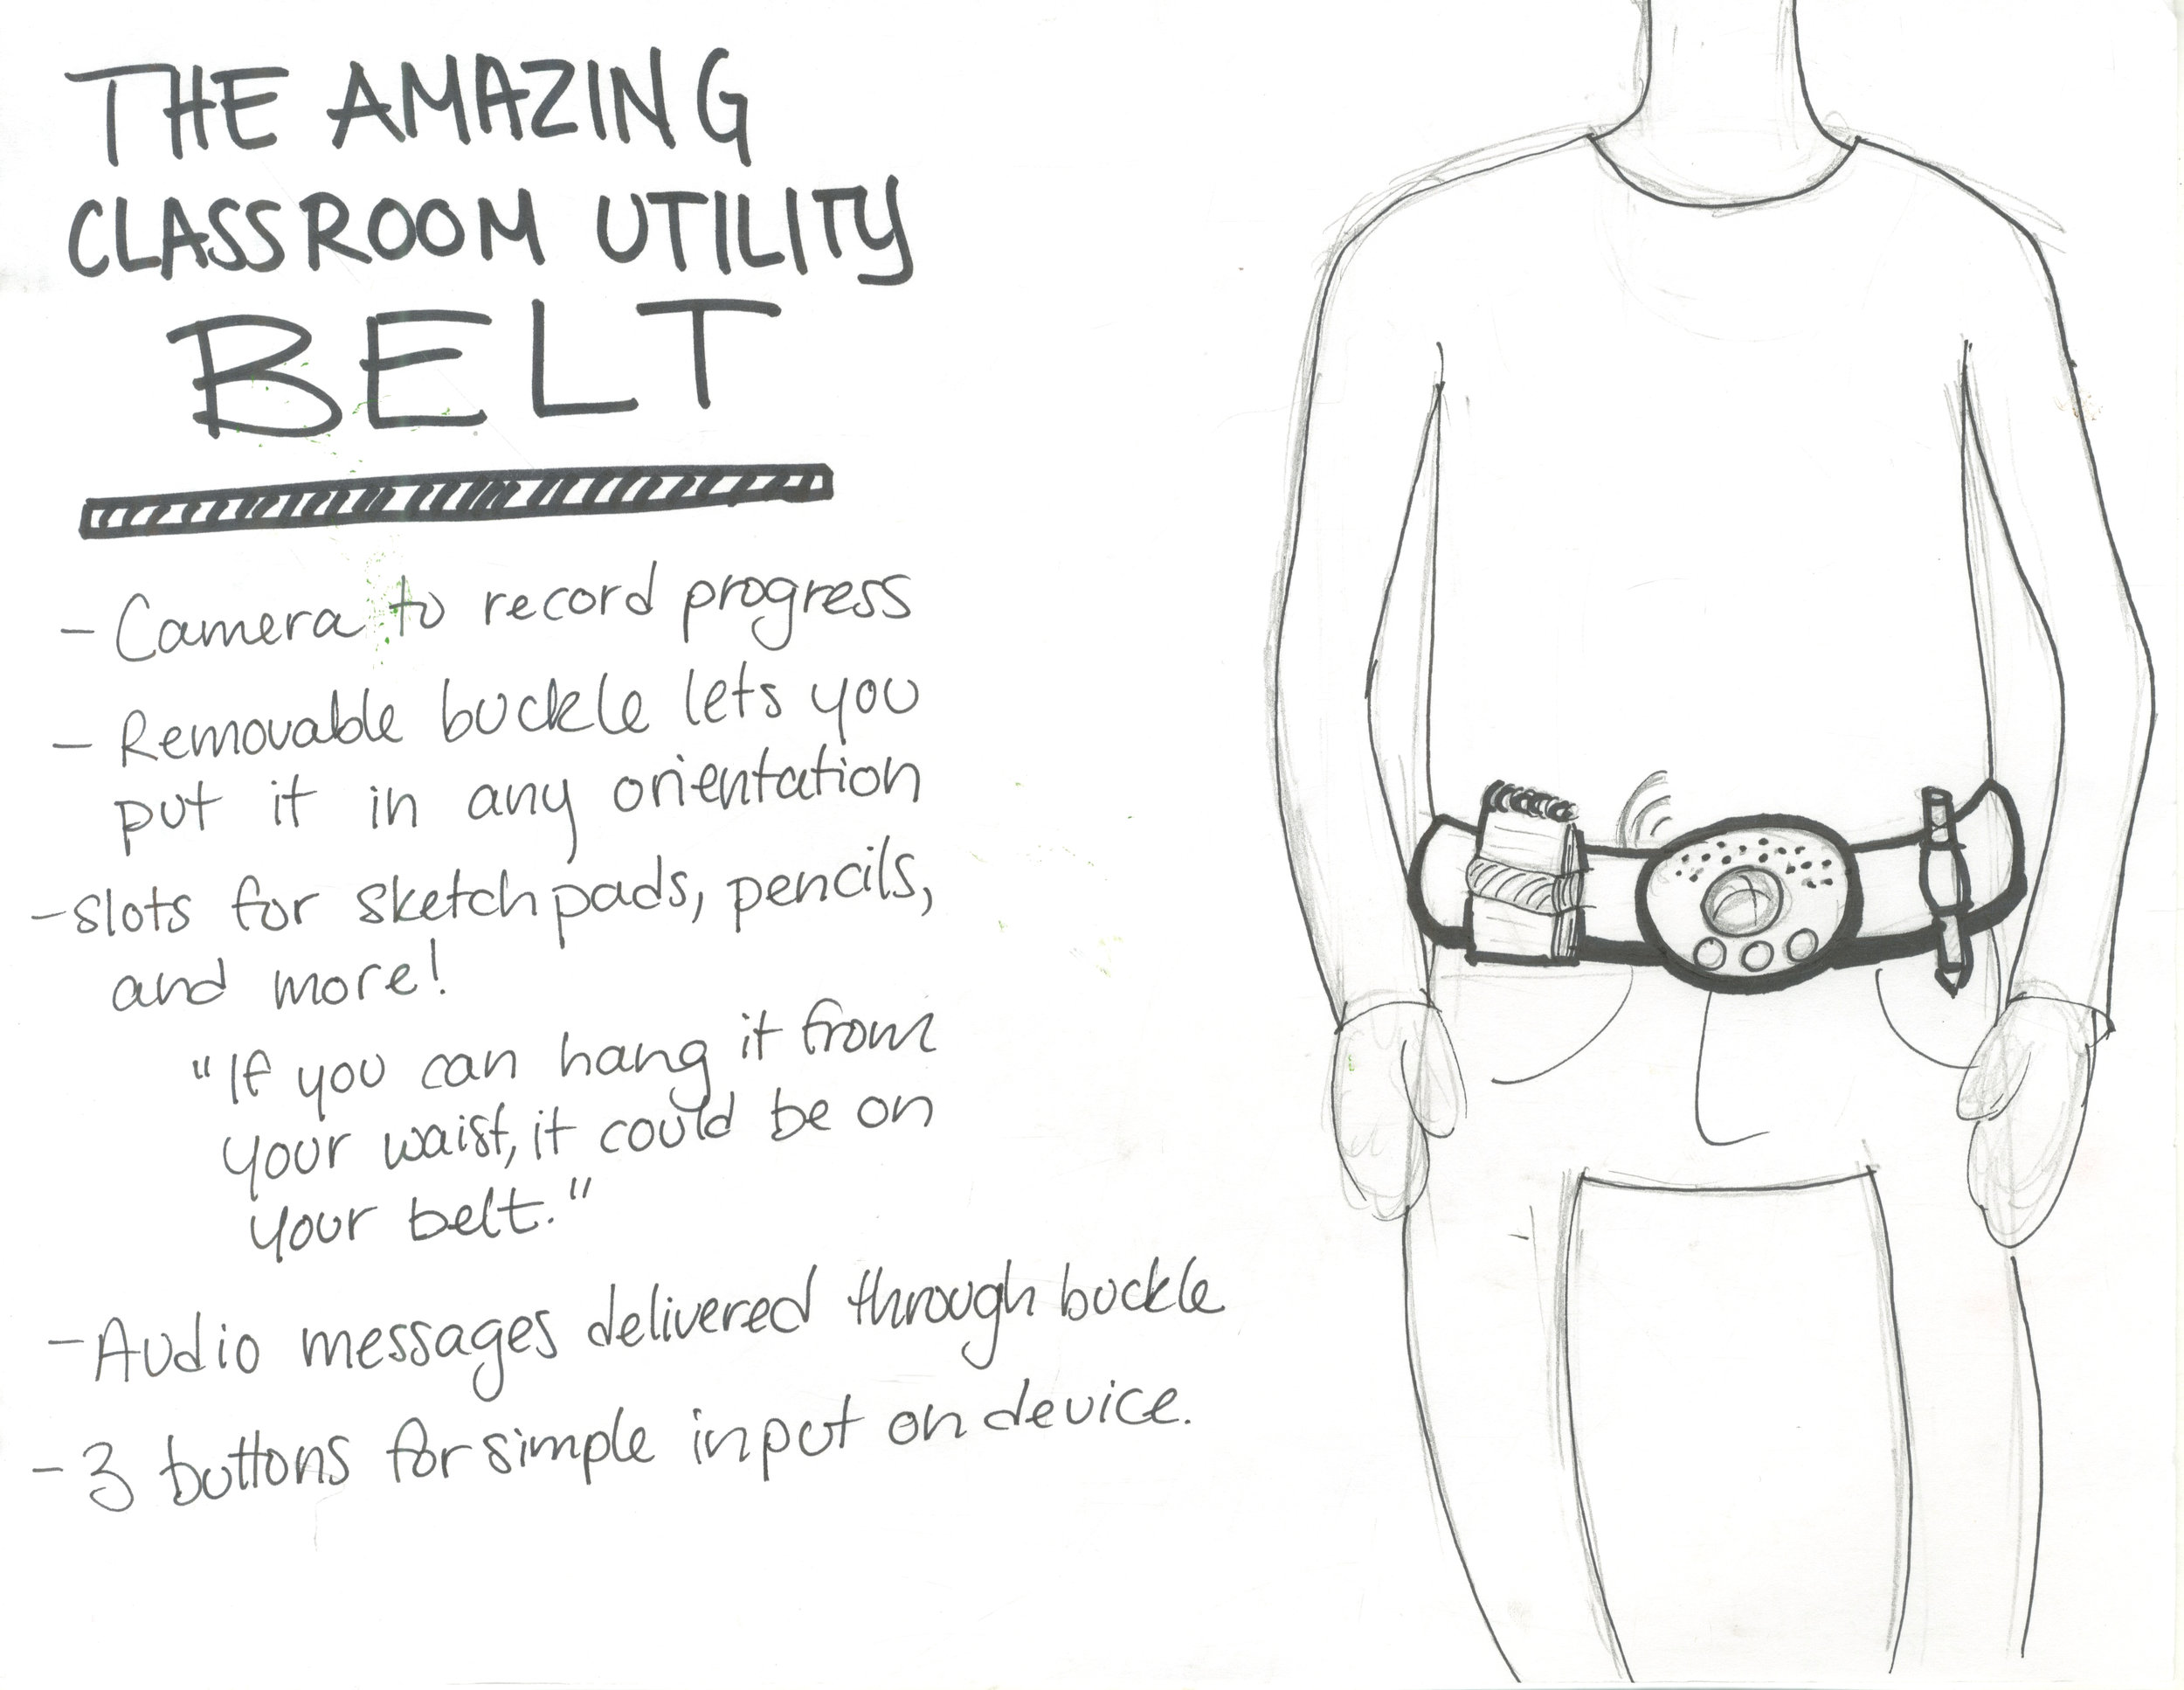 THE AMAZING
CLASSROOM UTILITY
BELT
- Camera to record progress
- Removable buckle lets you
put it in any orientation
- slots for sketchpads, pencils,
and more!
"If you can hang it from
your waist, it could be on
your belt."
- Audio messages delivered through buckle
- 3 buttons for simple input on device.